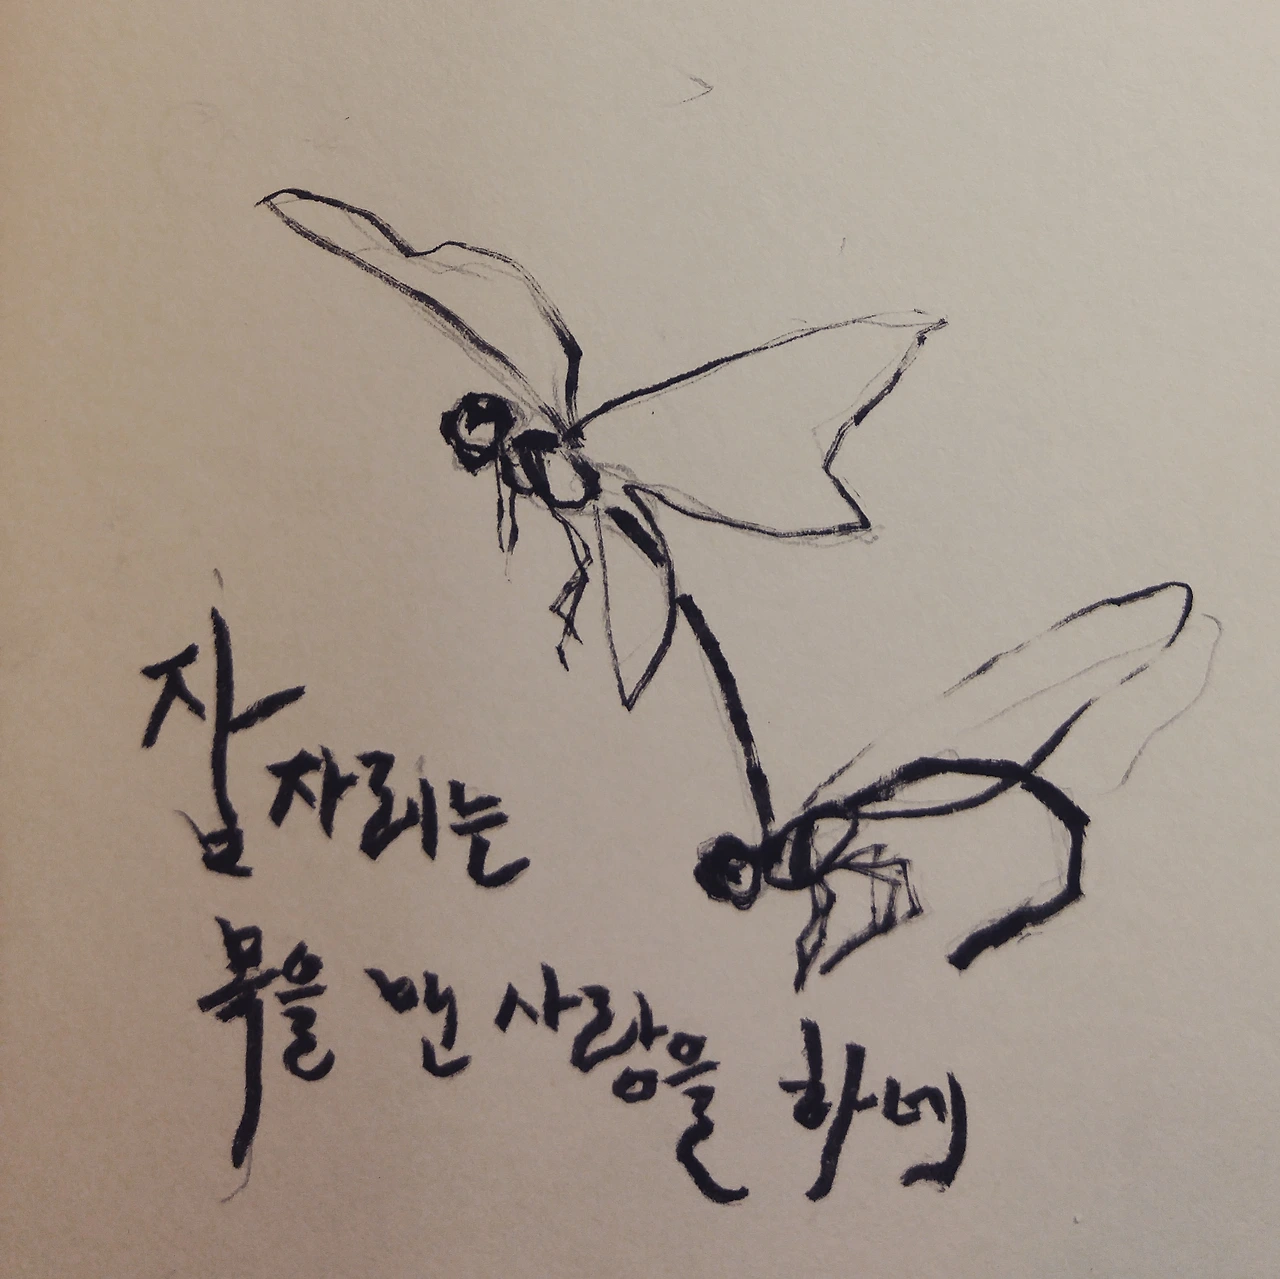 잠자리는
목을 맨 사랑을 하네